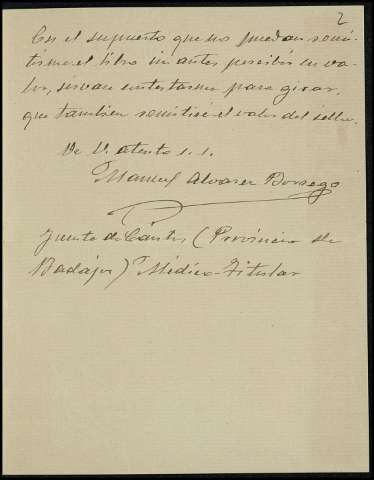 2
En el supuesto que no puedan remi-
tirme el libro sin antes percibir su va-
lor, sirvan contestarme para girar,
que tambien remitiré el valor del sello.
De V. atento s.s.
Manuel Alvarez Borrego
Fuente de Cantos (Provincia de
Badajoz) Médico-Titular